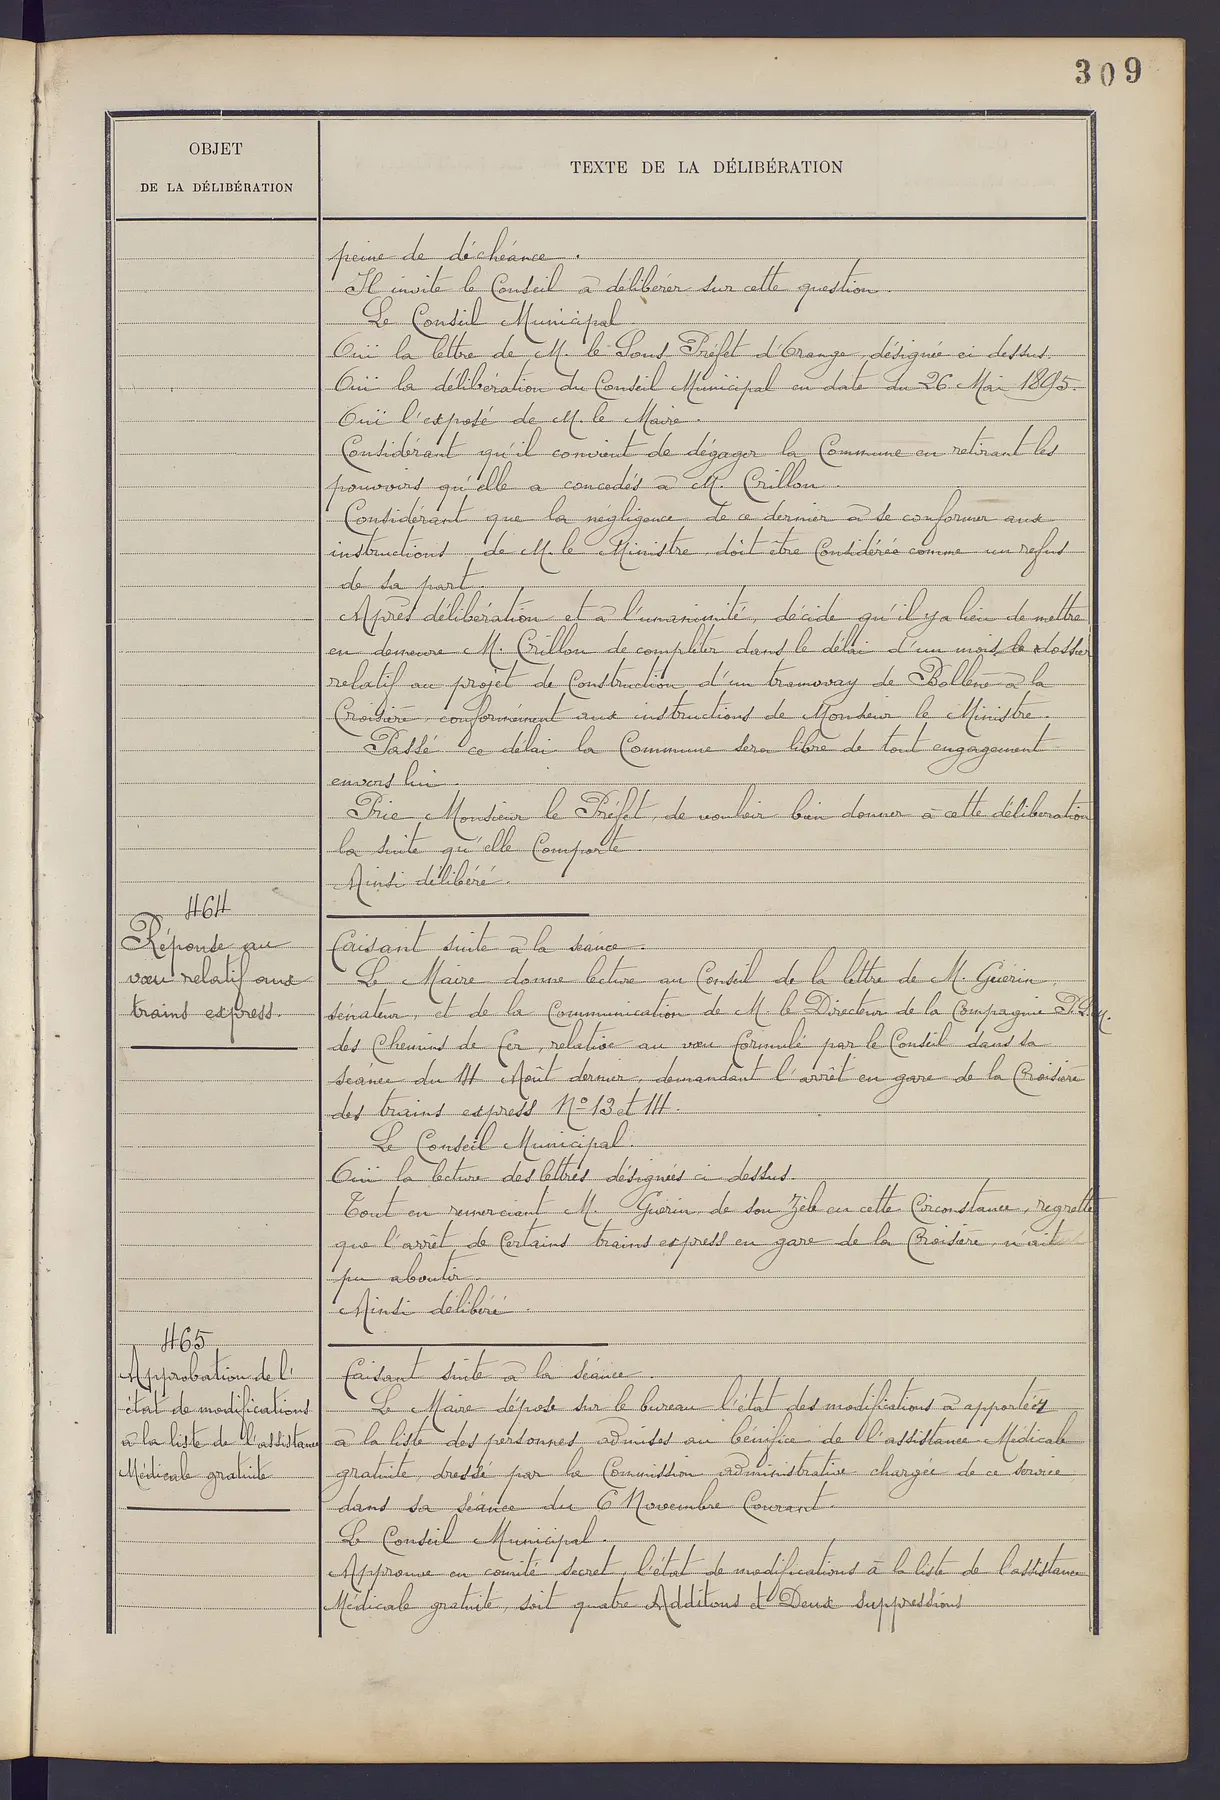 309
OBJET
DE LA DÉLIBÉRATION
TEXTE DE LA DÉLIBÉRATION
peine de déchéance.
Il invite le Conseil à délibérer sur cette question.
Le Conseil Municipal
Ouï la lettre de M. le Sous Préfet d'Orange, désignée ci dessus.
Ouï la délibération du Conseil Municipal en date du 26 Mai 1895.
Ouï l'exposé de M. le Maire.
Considérant qu'il convient de dégager la Commune en retirant les
pouvoirs qu'elle a concedés à M. Crillon.
Considérant que la négligence de ce dernier à se conformer aux
instructions de M. le Ministre doit être Considérée comme un refus
de sa part.
Après délibération et à l'unanimité, décide qu'il y a lieu de mettre
en demeure M. Crillon de compléter dans le délai d'un mois le dossier
relatif au projet de Construction d'un tramway de Bollène à la
Croisière, conformément aux instructions de Monsieur le Ministre.
Passé ce délai la Commune sera libre de tout engagement
envers lui.
Prie Monsieur le Préfet, de vouloir bien donner à cette délibération
la suite qu'elle Comporte.
Ainsi délibéré.
464
Réponse au
vœu relatif aux
trains express.
Faisant suite à la séance.
Le Maire donne lecture au Conseil de la lettre de M. Guérin,
sénateur, et de la Communication de M. le Directeur de la Compagnie P.L.M.
des Chemins de fer, relative au vœu formulé par le Conseil dans sa
séance du 14 Août dernier, demandant l'arrêt en gare de la Croisière
des trains express No 13 et 14.
Le Conseil Municipal.
Ouï la lecture des lettres désignées ci dessus.
Tout en remerciant M. Guérin de son Zèle en cette Circonstance, regrette
que l'arrêt de Certains trains express en gare de la Croisière, n'ait
pu aboutir.
Ainsi délibéré.
465
Approbation de l'
état de modifications
à la liste de l'assistance
Médicale gratuite
Faisant suite à la séance.
Le Maire dépose sur le bureau l'état des modifications à apportées
à la liste des personnes admises au bénéfice de l'assistance Médicale
gratuite, dressé par la Commission administrative chargée de ce service
dans sa séance du 6 Novembre Courant.
Le Conseil Municipal.
Approuve en comité secret, l'état de modifications à la liste de l'assistance
Médicale gratuite, soit quatre Additons et Deux suppressions